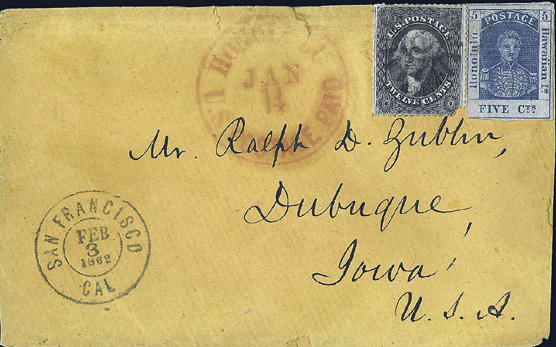 U.S. POSTAGE
TWELVE CENTS
5 POSTAGE 5
Honolulu
Hawaiian Is
FIVE Cts
HONOLULU
JAN
14
U.S. POSTAGE PAID
Mr. Ralph D. Zublin,
Dubuque,
Iowa
U.S.A.
SAN FRANCISCO
FEB
3
1862
CAL